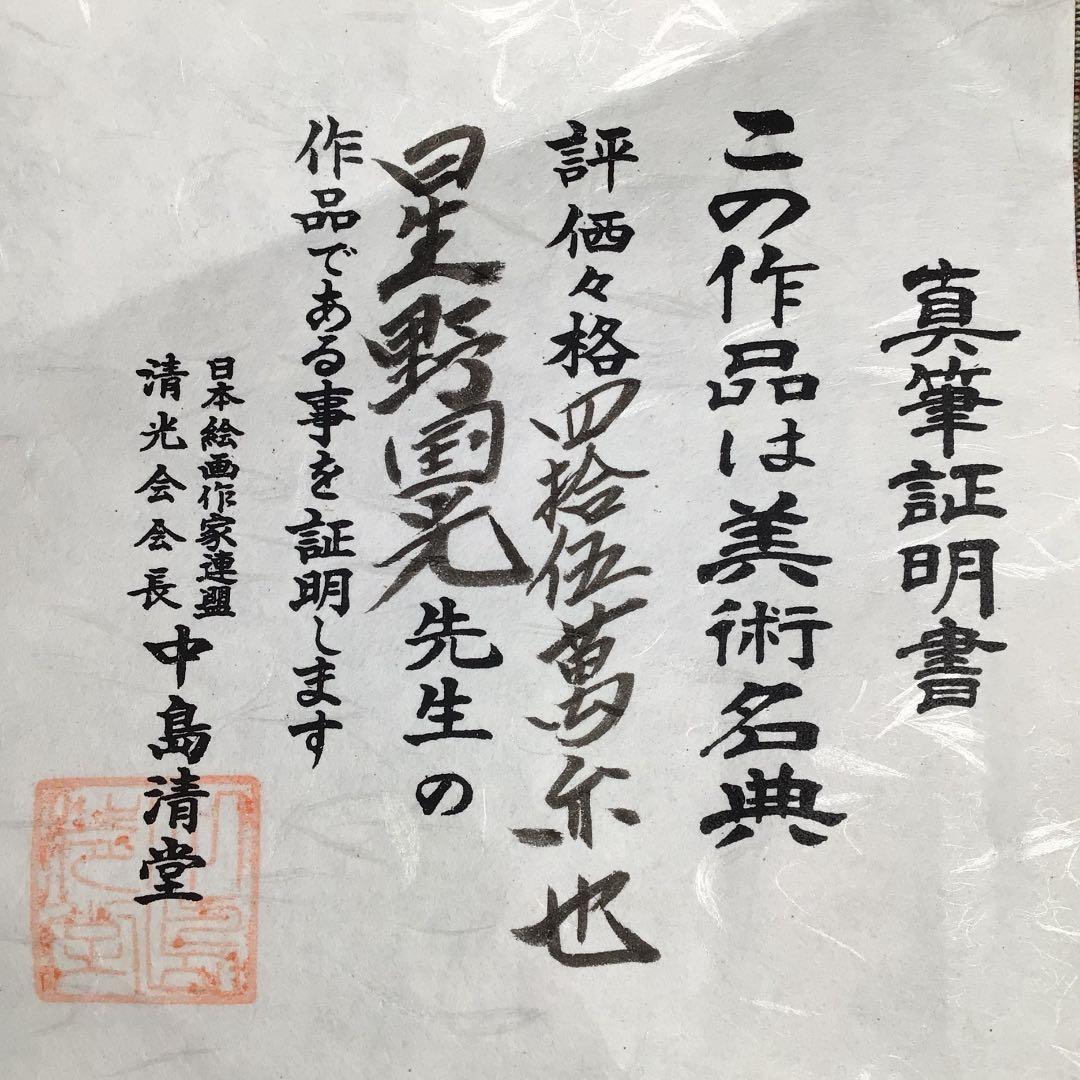 真筆証明書
この作品は美術名典
評価々格四拾伍萬円也
星野国光先生の
作品である事を証明します
日本絵画作家連盟
清光会会長 中島清堂